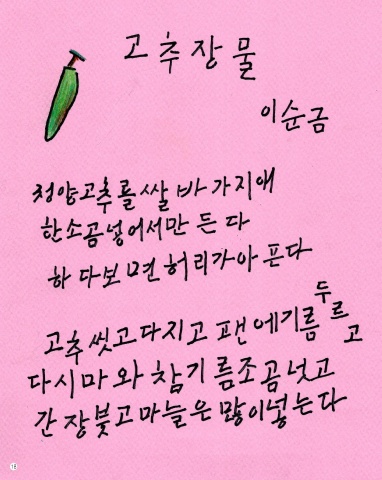 고추장물
이순금
청양고추를쌀바가지애
한소곰넣어서만든다
하다보면허리가아픈다
고추씻고다지고팬에기름두르고
다시마와참기름조곰넛고
간장붖고마늘은많이넣는다
16